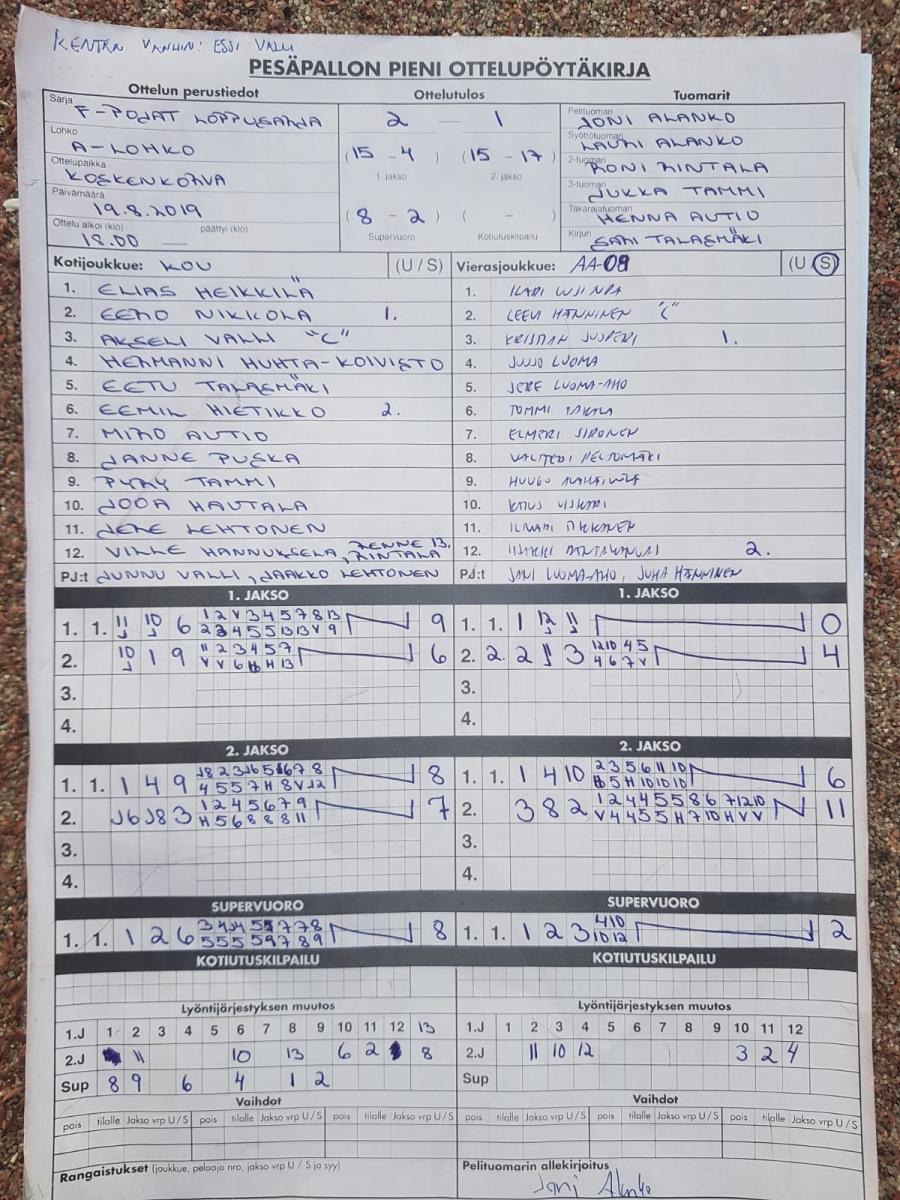 KENTÄN VANHIN: ESSI VALLI
PESÄPALLON PIENI OTTELUPÖYTÄKIRJA
Ottelun perustiedot Ottelutulos Tuomarit
Sarja F-POJAT LOPPUSARJA 2 — 1 Pelituomari JONI ALANKO
Lohko A-LOHKO (15 - 4) (15 - 17) Syöttötuomari LAURI ALANKO
Ottelupaikka KOSKENKORVA 1. jakso 2. jakso 2-tuomari RONI RINTALA
Päivämäärä 19.8.2019 (8 - 2) ( - ) 3-tuomari JUKKA TAMMI
Supervuoro Kotiutuskilpailu Takarajatuomari HENNA AUTIO
Ottelu alkoi (klo) 18.00 päättyi (klo) Kirjuri SAMI TALASMÄKI
Kotijoukkue: KOU (U / S) Vierasjoukkue: AA-09 (U / S)
1. ELIAS HEIKKILÄ 1. ILARI
2. EERO NIKKOLA 1. 2. LEEVI HÄNNINEN "C"
3. AKSELI VALLI "C" 3. KRISTIAN 1.
4. HERMANNI HUHTA-KOIVISTO 4. JUSO LUOMA
5. EETU TALASMÄKI 5. JERE LUOMA-AHO
6. EEMIL HIETIKKO 2. 6. TOMMI
7. MIRO AUTIO 7. ELMERI SIRONEN
8. JANNE PUSKA 8. VALTTERI PELTOMÄKI
9. PYRY TAMMI 9. HUUGO
10. JOOA HAUTALA 10.
11. JERE LEHTONEN 11. ILMARI
12. VILLE HANNUKSELA, RENNE RINTALA 13. 12. 2.
PJ:t JUNNU VALLI, JAAKKO LEHTONEN PJ:t JANI LUOMA-AHO, JUHA HÄNNINEN
1. JAKSO 1. JAKSO
1. 1. 11 10 6 1 2 V 3 4 5 7 8 13 9 1. 1. 1 12 11 0
2 3 4 5 5 13 13 V 9
2. 10 1 9 11 2 3 4 5 7 6 2. 2. 2 11 3 12 10 4 5 4
V V 6 H H 13 4 6 7 V
3. 3.
4. 4.
2. JAKSO 2. JAKSO
1. 1. 1 4 9 J8 2 3 J6 5 J6 7 8 8 1. 1. 1 4 10 2 3 5 6 11 10 6
4 5 5 7 H 8 V J2 H 5 H 10 10 10
2. J6 J8 3 1 2 4 5 6 7 9 7 2. 3 8 2 1 2 4 4 5 5 8 6 7 12 10 11
H 5 6 8 8 8 11 V 4 4 5 5 H 7 10 H V V
3. 3.
4. 4.
SUPERVUORO SUPERVUORO
1. 1. 1 2 6 3 4 J4 5 5 7 7 8 8 1. 1. 1 2 3 4 10 2
5 5 5 5 9 7 8 9 10 12
KOTIUTUSKILPAILU KOTIUTUSKILPAILU
Lyöntijärjestyksen muutos Lyöntijärjestyksen muutos
1.J 1 2 3 4 5 6 7 8 9 10 11 12 13 1.J 1 2 3 4 5 6 7 8 9 10 11 12
2.J 11 10 13 6 2 8 2.J 11 10 12 3 2 4
Sup 8 9 6 4 1 2 Sup
Vaihdot Vaihdot
pois tilalle Jakso vrp U / S pois tilalle Jakso vrp U / S pois tilalle Jakso vrp U / S pois tilalle Jakso vrp U / S pois tilalle Jakso vrp U / S pois tilalle Jakso vrp U / S
Rangaistukset (joukkue, pelaaja nro, jakso vrp U / S ja syy) Pelituomarin allekirjoitus
Joni Alanko